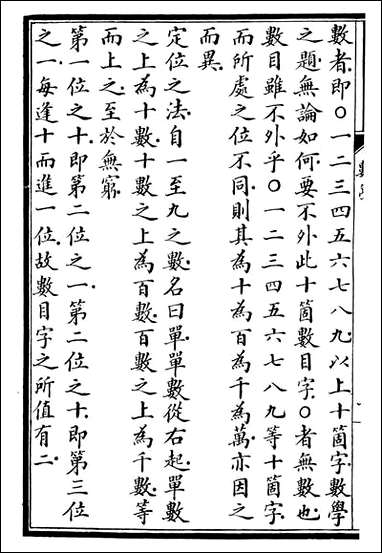 數者即〇一二三四五六七八九以上十箇字數學
之題無論如何要不外此十箇數目字〇者無數也
數目雖不外乎〇一二三四五六七八九等十箇字
而所處之位不同則其為十為百為千為萬亦因之
而異
定位之法自一至九之數名曰單單數從右起單數
之上為十數十數之上為百數百數之上為千數等
而上之至於無窮
第一位之十即第二位之一第二位之十即第三位
之一每逢十而進一位故數目字之所值有二